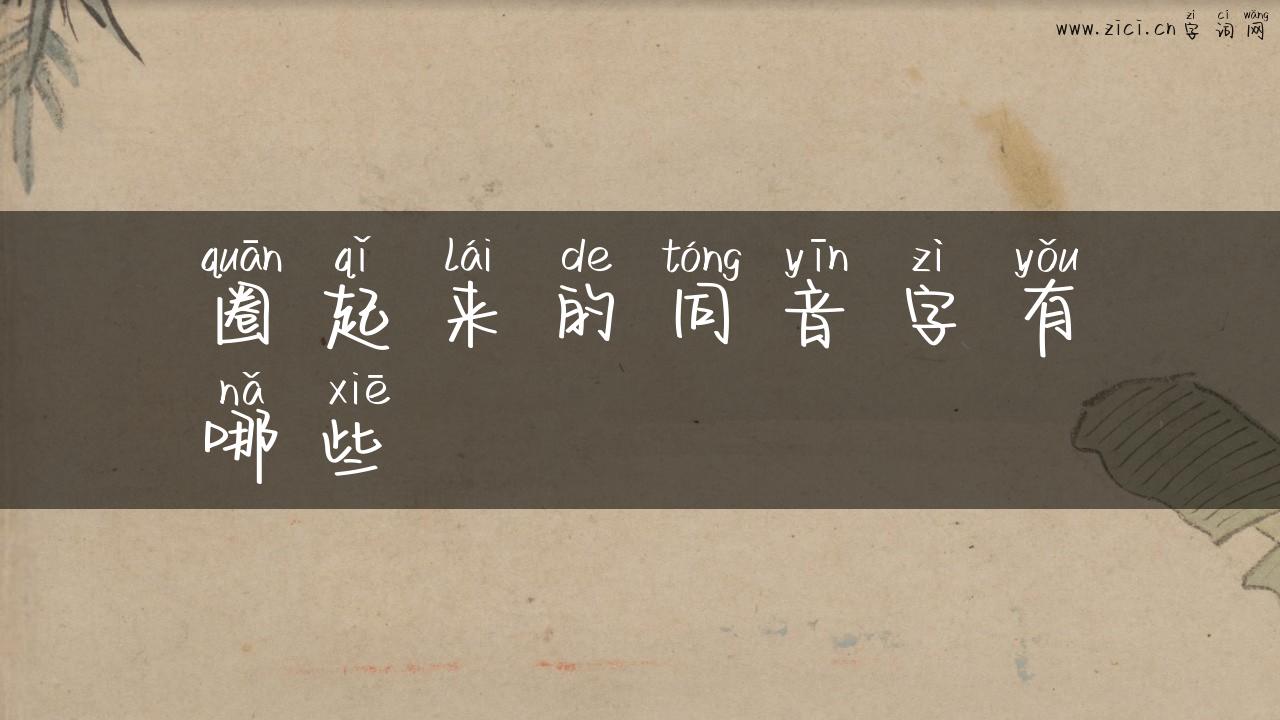 zì cí wǎng
www.zici.cn 字词网
quān qǐ lái de tóng yīn zì yǒu
圈起来的同音字有
nǎ xiē
哪些